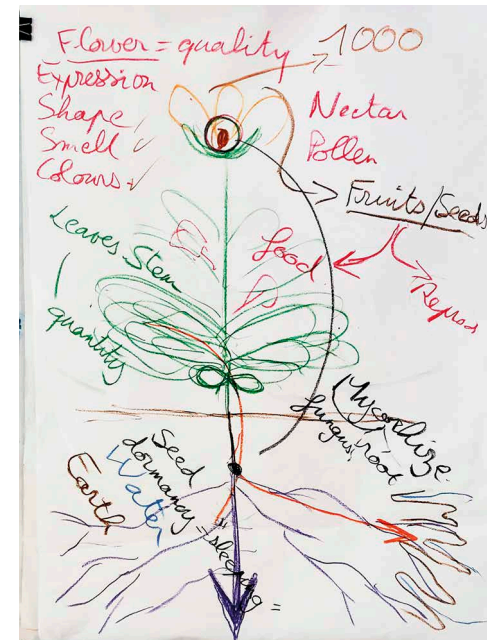 Flower = quality
1000
Expression
Shape
Smell
Colours
Nectar
Pollen
Fruits/Seeds
Leaves Stem
quantity
food
Reprod
Mycorhize
fungus, root
Seed
dormancy = sleeping =
Water
Earth